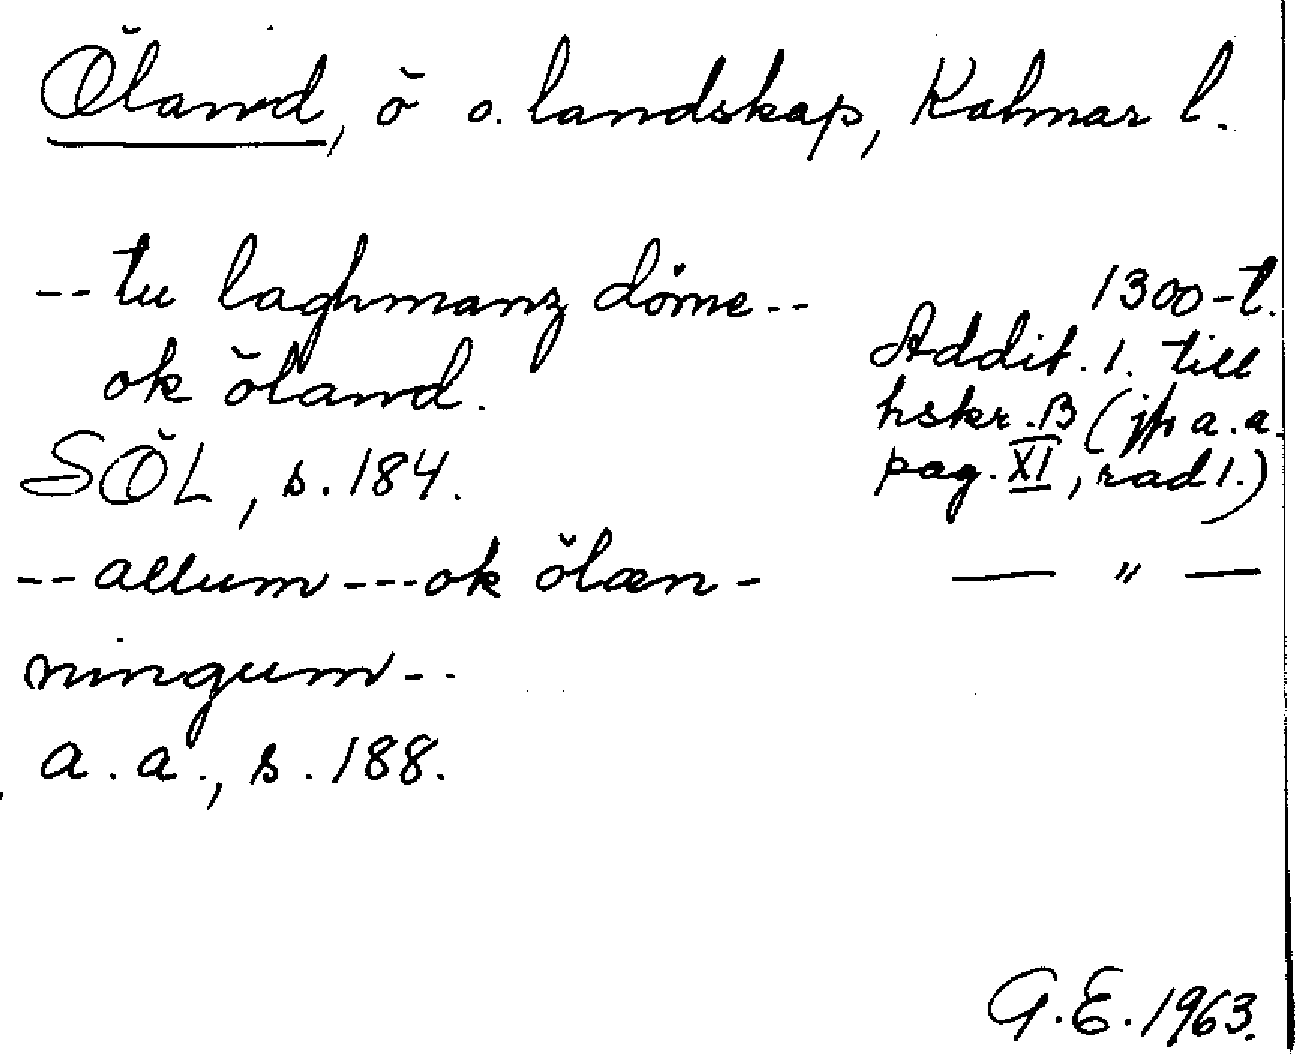 Öland, ö o. landskap, Kalmar l.
-- tu laghmanz döme -- 1300-t.
ok öland. Addit. 1. till
hskr. B (jfr a.a.
SÖL, s. 184. pag. XI, rad 1.)
-- allum --- ok ölæn- — " —
ningum --
a.a., s. 188.
G.E. 1963.